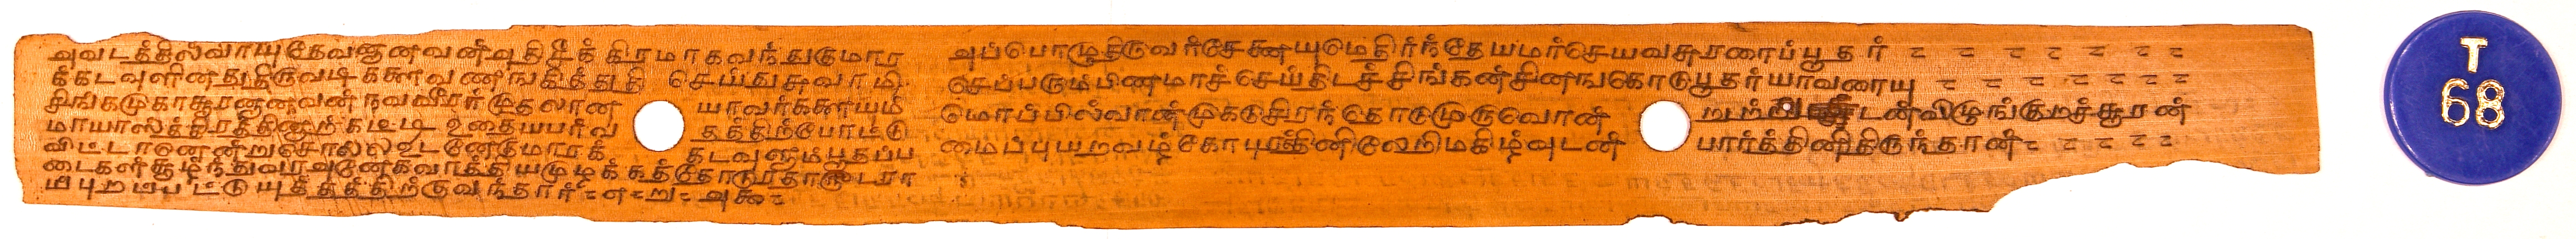 அவடத்தில்வாயுதேவனானவன்அதிசீக்கிரமாகவந்துகுமார
க்கடவுளினதுதிருவடிக்களைவணங்கித்துதி செய்துசுவாமி
சிங்கமுகாசூரனானவன்நவவீரர்முதலான யாவர்க்களையும்
மாயாஸ்த்திரத்தினாற்கட்டி உதையபர்வ தத்துற்போட்டு
விட்டானென்றுசொல்லஉடனேகுமாரக் கடவுளும்பூதப்ப
டைகள்சூழ்ந்துவரஅனேகவாத்தியமுழக்கத்தோடு
ம்புறப்பட்டுயுத்தத்திற்குவந்தார்
அப்பொழுதிருவர்சேனையுமெதிர்ந்தேயமர்செயவசுரரைப்பூதர்
செப்பரும்பிணமாச்செய்திடச்சிங்கன்சினங்கொடுபூதர்யாவரையு
மொப்பில்வான்முகடுசிரந்தொடமுருவோன் றுற்ற டன்விழுங்குறச்சூரன்
மைப்புயறவழ்கோபுரத்தினிலேறிமகிழ்வுடன் பார்த்தினிதிருந்தான்
T
68